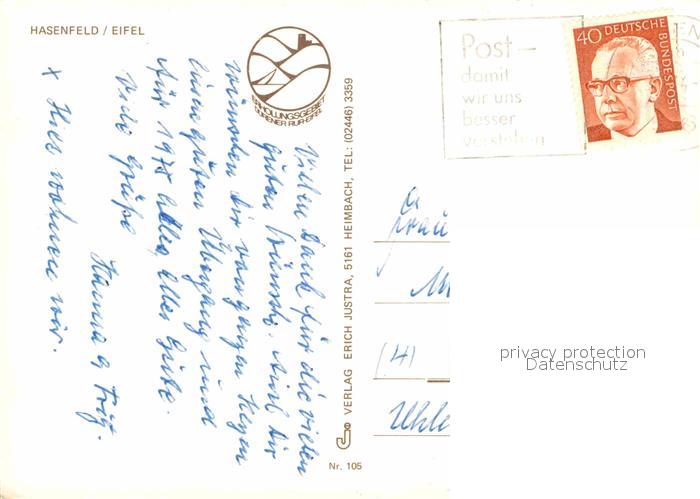 HASENFELD / EIFEL
ERHOLUNGSGEBIET
DÜRENER RUR-EIFEL
Post —
damit
wir uns
besser
verstehen
40 DEUTSCHE
BUNDESPOST
Vielen Dank für die vielen
guten Wünsche. Auch Dir
wünschen wir von ganzem Herzen
einen guten Übergang und
für 1978 alles, alles Gute.
Viele Grüße
Hanna
x Hier wohnen wir.
VERLAG ERICH JUSTRA, 5161 HEIMBACH, TEL: (02446) 3359
Nr. 105
Frau
(H)
privacy protection
Datenschutz